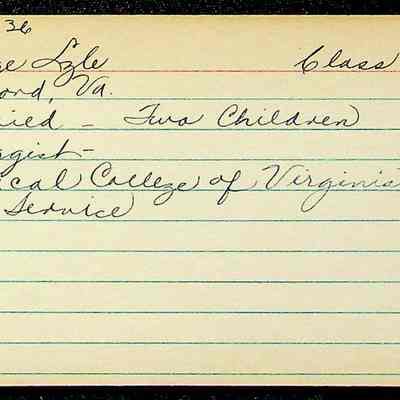 36
ge Lyle Class
ond, Va.
ried - Two Children
ggist -
ical College of Virginia
Service